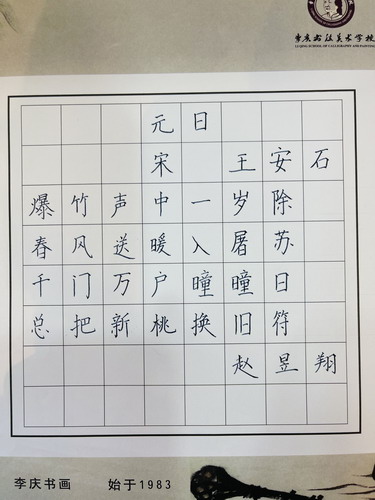 李庆书法美术学校
LI QING SCHOOL OF CALLIGRAPHY AND PAINTING
元日
宋 王安石
爆竹声中一岁除
春风送暖入屠苏
千门万户曈曈日
总把新桃换旧符
赵昱翔
李庆书画 始于1983